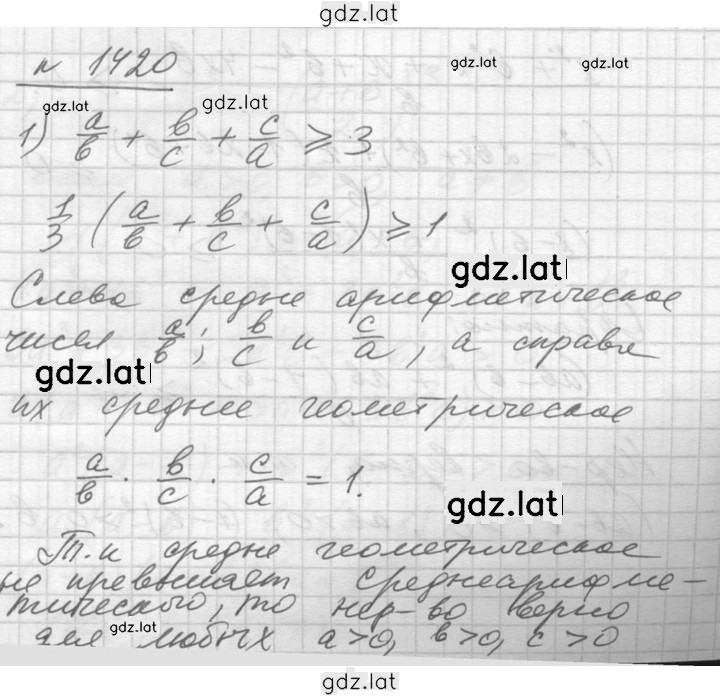 gdz.lat
n 1420
gdz.lat
gdz.lat
gdz.lat
1) a/b + b/c + c/a ⩾ 3
1/3 (a/b + b/c + c/a) ⩾ 1
gdz.lat
Слева средне арифметическое
чисел a/b; b/c и c/a, а справа
gdz.lat
их среднее геометрическое
a/b · b/c · c/a = 1.
gdz.lat
Т.к средне геометрическое
не превышает среднеарифме-
тического, то нер-во верно
gdz.lat
для любых a>0, b>0, c>0
gdz.lat